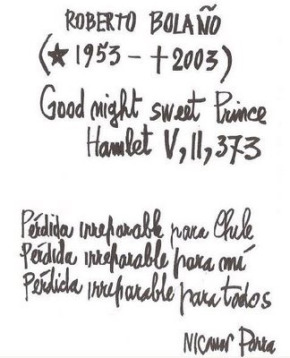 ROBERTO BOLAÑO
(★ 1953 - † 2003)
Good night sweet Prince
Hamlet V, II, 373
Pérdida irreparable para Chile
Pérdida irreparable para mí
Pérdida irreparable para todos
Nicanor Parra